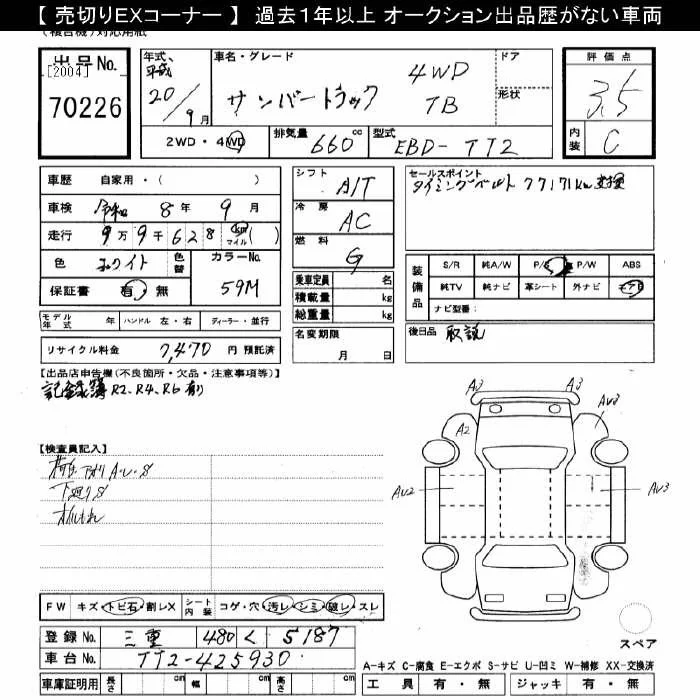 【 売切りEXコーナー 】 過去１年以上 オークション出品歴がない車両
出品No.
[2004]
70226
年式.
平成
20/9月
車名・グレード
サンバートラック
4WD
TB
ドア
形状
評価点
3.5
内装
C
2WD・4WD
排気量
660cc
型式
EBD-TT2
車歴 自家用・( )
車検 令和 8年 9月
走行 9万9千628 km マイル ( )
色 ホワイト 色替 カラーNo. 59M
保証書 有・無
シフト A/T
冷房 AC
燃料 G
乗車定員 名
積載量 kg
総重量 kg
名変期限
月 日
セールスポイント
タイミングベルト 77171km 交換
装備品
S/R 純A/W P/S P/W ABS
純TV 純ナビ 革シート 外ナビ エアB
ナビ型番:
モデル年式 年 ハンドル 左・右 ディーラー・並行
リサイクル料金 7,470 円 預託済
後日品 取説
【出品店申告欄(不良箇所・欠品・注意事項等)】
記録簿 R2、R4、R6 有り
【検査員記入】
下廻りS
A3 A3
A2 AU3
AU2 AU3
スペア
FW キズ・トビ石・割レX シート内装 コゲ・穴・汚レ・シミ・破レ・スレ
登録No. 三重 480 く 5187
車台No. TT2-425930
車庫証明用 長さ cm 幅 cm 高さ cm
A-キズ C-腐食 E-エクボ S-サビ U-凹ミ W-補修 XX-交換済
工具 有・無 ジャッキ 有・無